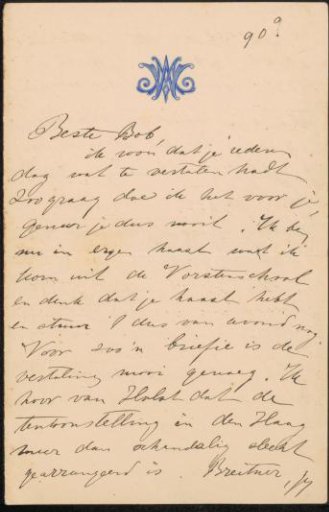 90a
Beste Bob
ik wou dat je iedere
dag wat te vertalen hadt
zoo graag doe ik het voor je
geneer je dus nooit. Ik ben
nu in erge haast want ik
kom uit de Vorstenschool
en denk dat je haast hebt
en stuur 't dus van avond nog.
Voor zoo'n briefje is de
vertaling mooi genoeg. Ik
hoor van Holst dat de
tentoonstelling in den Haag
meer dan schandalig slecht
gearrangeerd is Breitner,